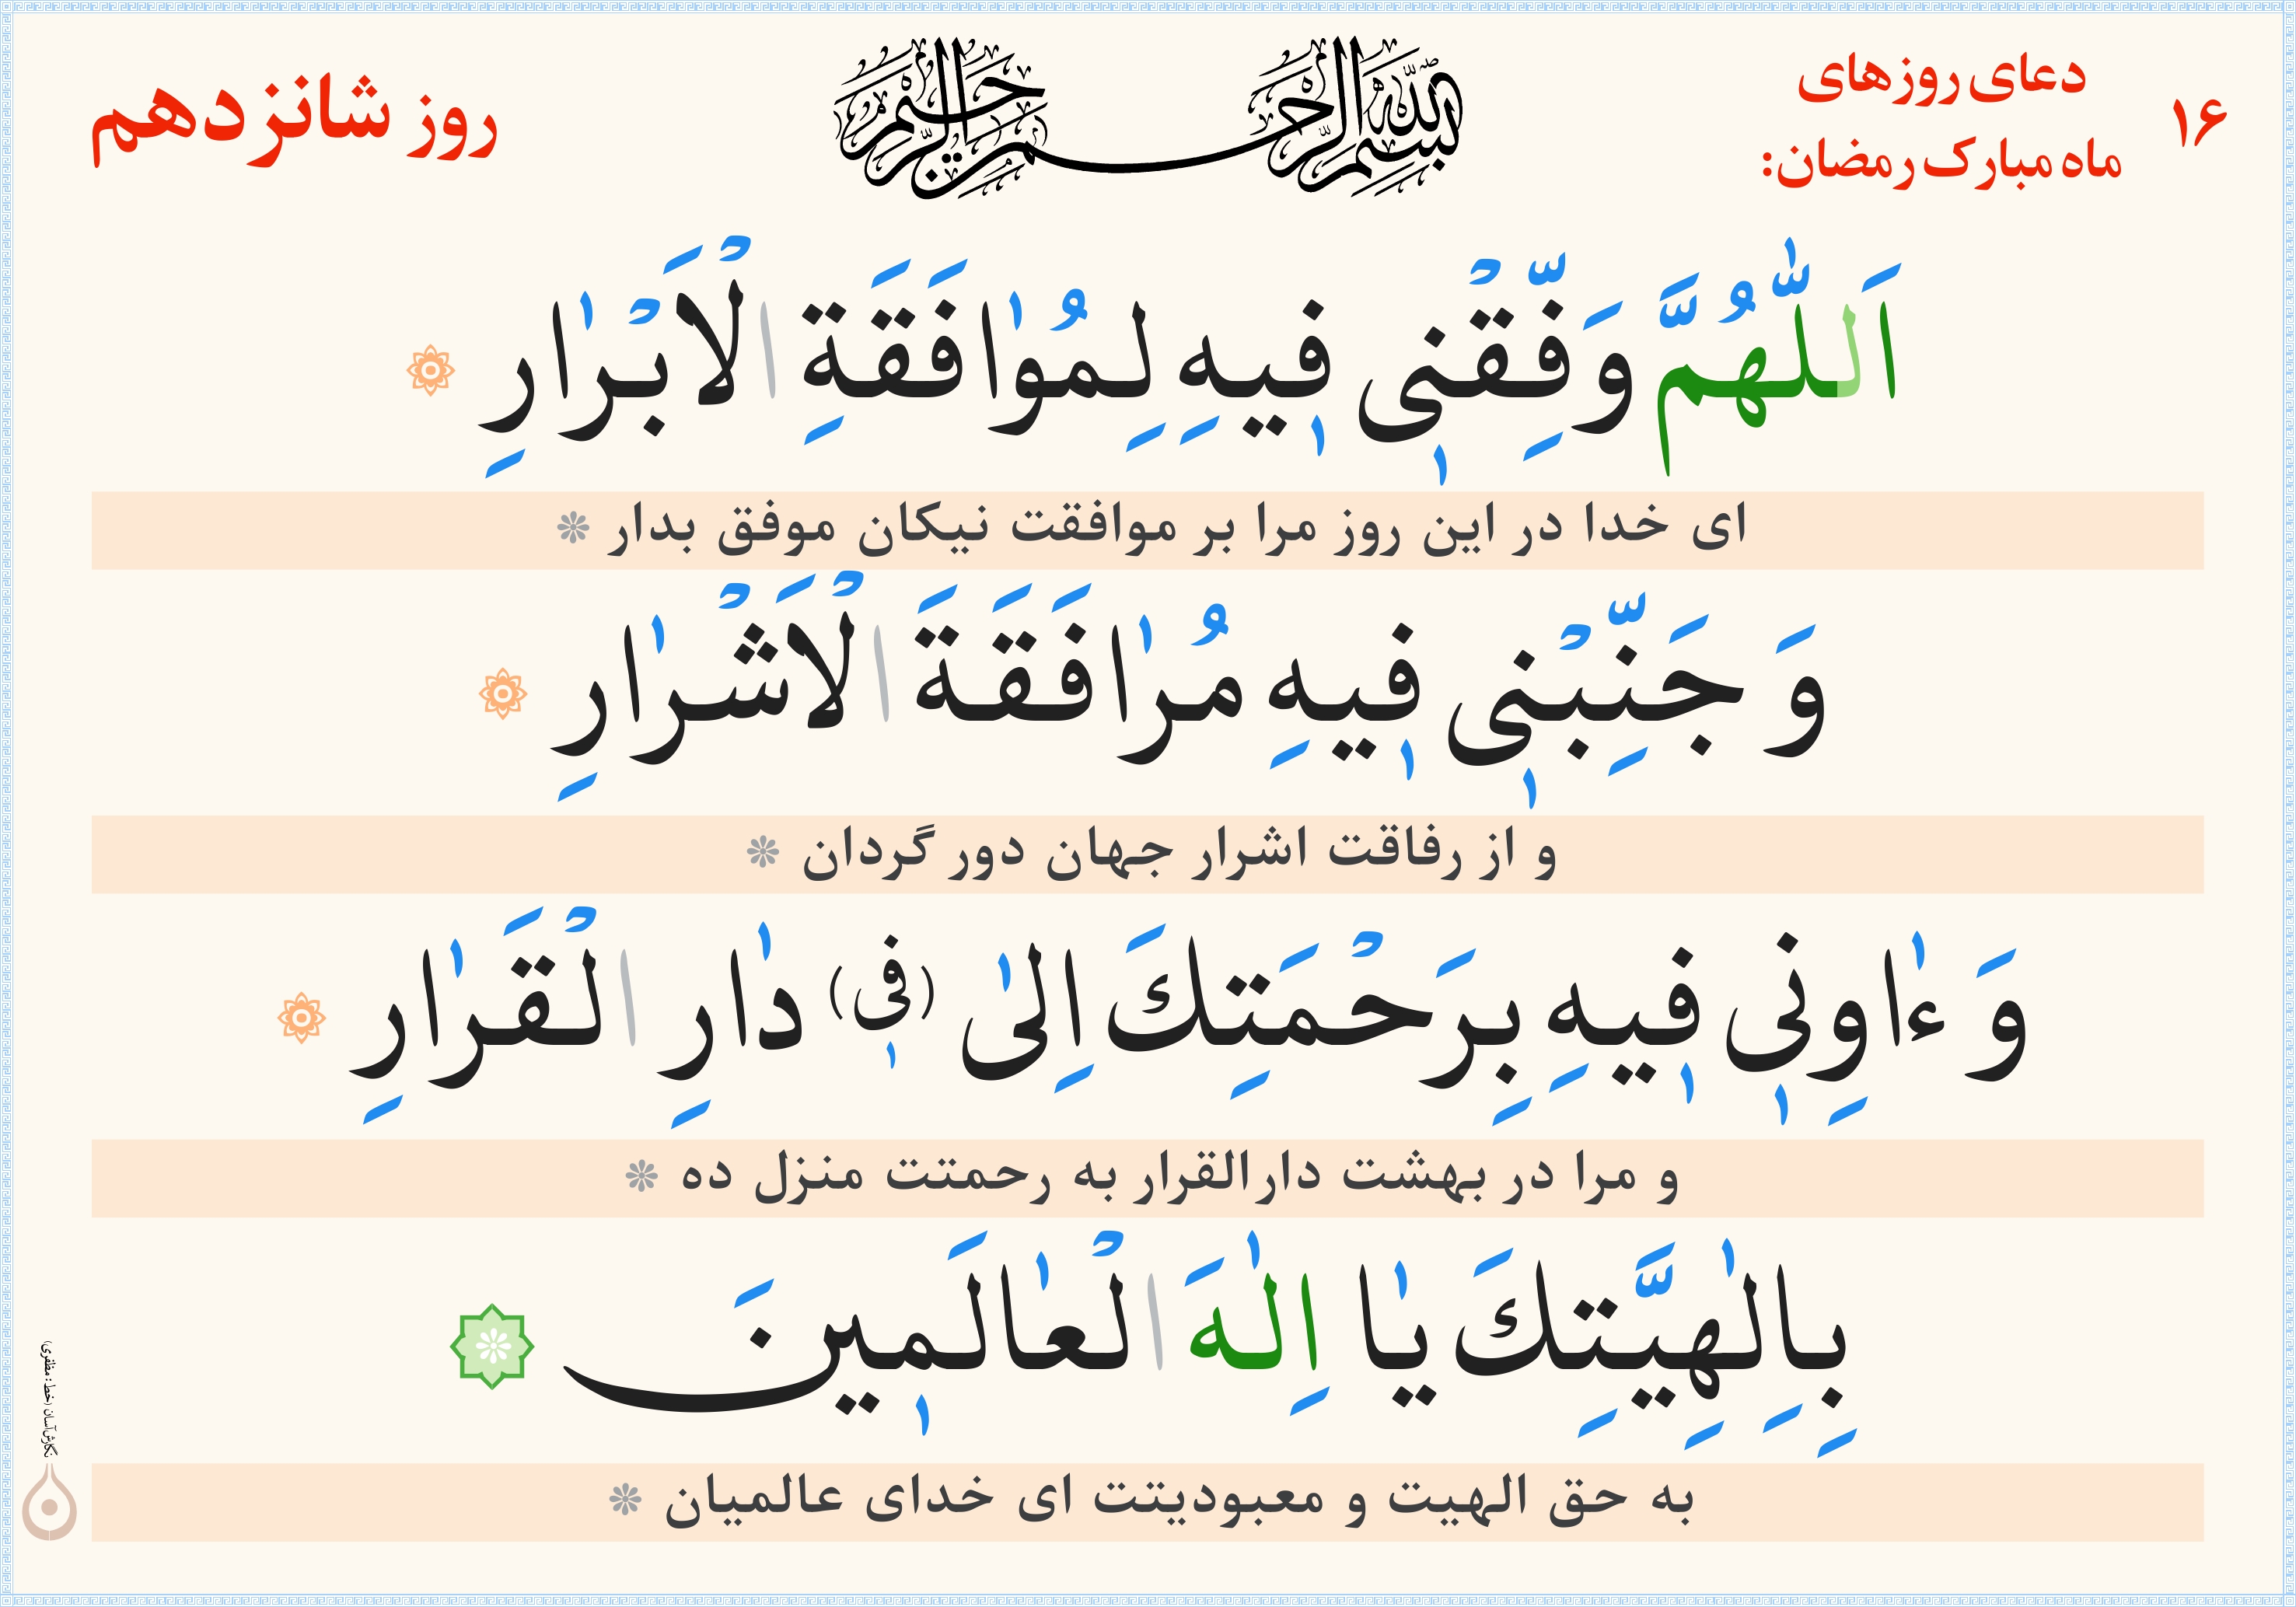 ۱۶
دعای روزهای
ماه مبارک رمضان:
بسم الله الرحمن الرحیم
روز شانزدهم
اَللّٰهُمَّ وَفِّقْنٖی فٖیهِ لِمُوٰافَقَةِ الْاَبْرٰارِ
ای خدا در این روز مرا بر موافقت نیکان موفق بدار
وَ جَنِّبْنٖی فٖیهِ مُرٰافَقَةَ الْاَشْرٰارِ
و از رفاقت اشرار جهان دور گردان
وَ ءٰاوِنٖی فٖیهِ بِرَحْمَتِكَ اِلیٰ (فٖی) دٰارِ الْقَرٰارِ
و مرا در بهشت دارالقرار به رحمتت منزل ده
بِاِلٰهِیَّتِكَ یٰا اِلٰهَ الْعٰالَمٖینَ
به حق الهیت و معبودیتت ای خدای عالمیان
نگارش آسان (خط: مظفری)